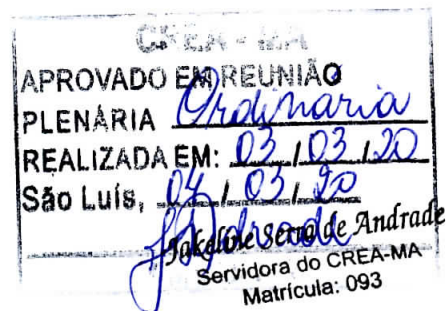 CREA - MA
APROVADO EM REUNIÃO
PLENÁRIA Ordinaria
REALIZADA EM: 03 / 03 / 20
São Luís, 04 / 03 / 20
Jakeline Serra de Andrade
Servidora do CREA-MA
Matrícula: 093